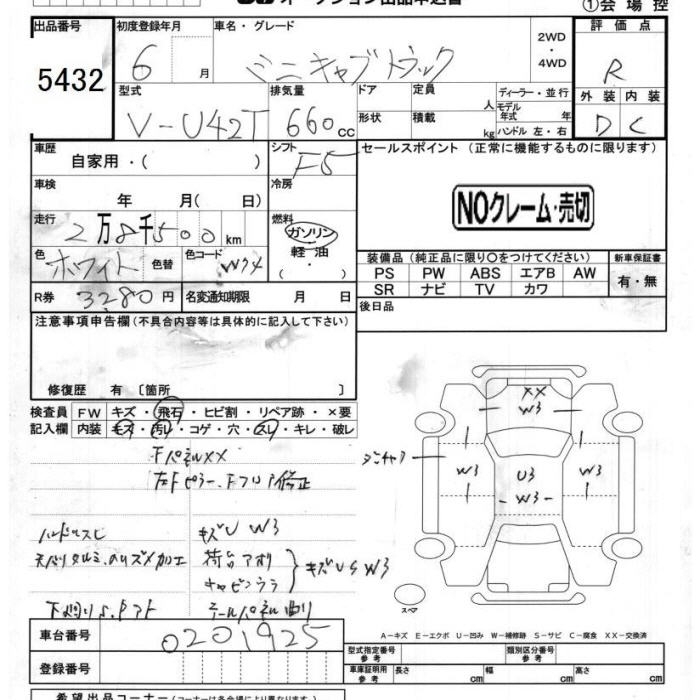 オークション出品申込書
①会場控
出品番号
5432
初度登録年月
6 月
車名・グレード
ミニキャブトラック
2WD
・
4WD
評価点
R
外装 内装
D C
型式
V-U42T
排気量
660 cc
ドア
定員
人
形状
積載
kg
ディーラー・並行
モデル年式 年
ハンドル 左・右
車歴
自家用・( )
シフト
F5
セールスポイント (正常に機能するものに限ります)
NOクレーム・売切
車検
年 月( 日)
冷房
走行
2万8千500km
燃料
ガソリン
軽油
・( )
色
ホワイト
色替
色コード
W74
装備品 (純正品に限り○をつけてください)
PS PW ABS エアB AW
SR ナビ TV カワ
新車保証書
有・無
R券 3280円
名変通知期限 月 日
後日品
注意事項申告欄(不具合内容等は具体的に記入して下さい)
修復歴 有〔箇所 〕
検査員記入欄
FW キズ・飛石・ヒビ割・リペア跡・×要
内装 キズ・汚れ・コゲ・穴・スレ・キレ・破レ
FパネルXX
左Fピラー、Fフロア修正
キズU W3
荷台アオリ
キャビンウラ
キズUS W3
テールパネル曲り
下廻りS、
XX
W3
W3
U3
W3
W3
スペア
A－キズ E－エクボ U－凹み W－補修跡 S－サビ C－腐食 XX－交換済
車台番号
0201925
登録番号
型式指定番号
参考
類別区分番号
参考
車庫証明用
参考
長さ cm
幅 cm
高さ cm
希望出品コーナー(コーナーは各会場により異なります)